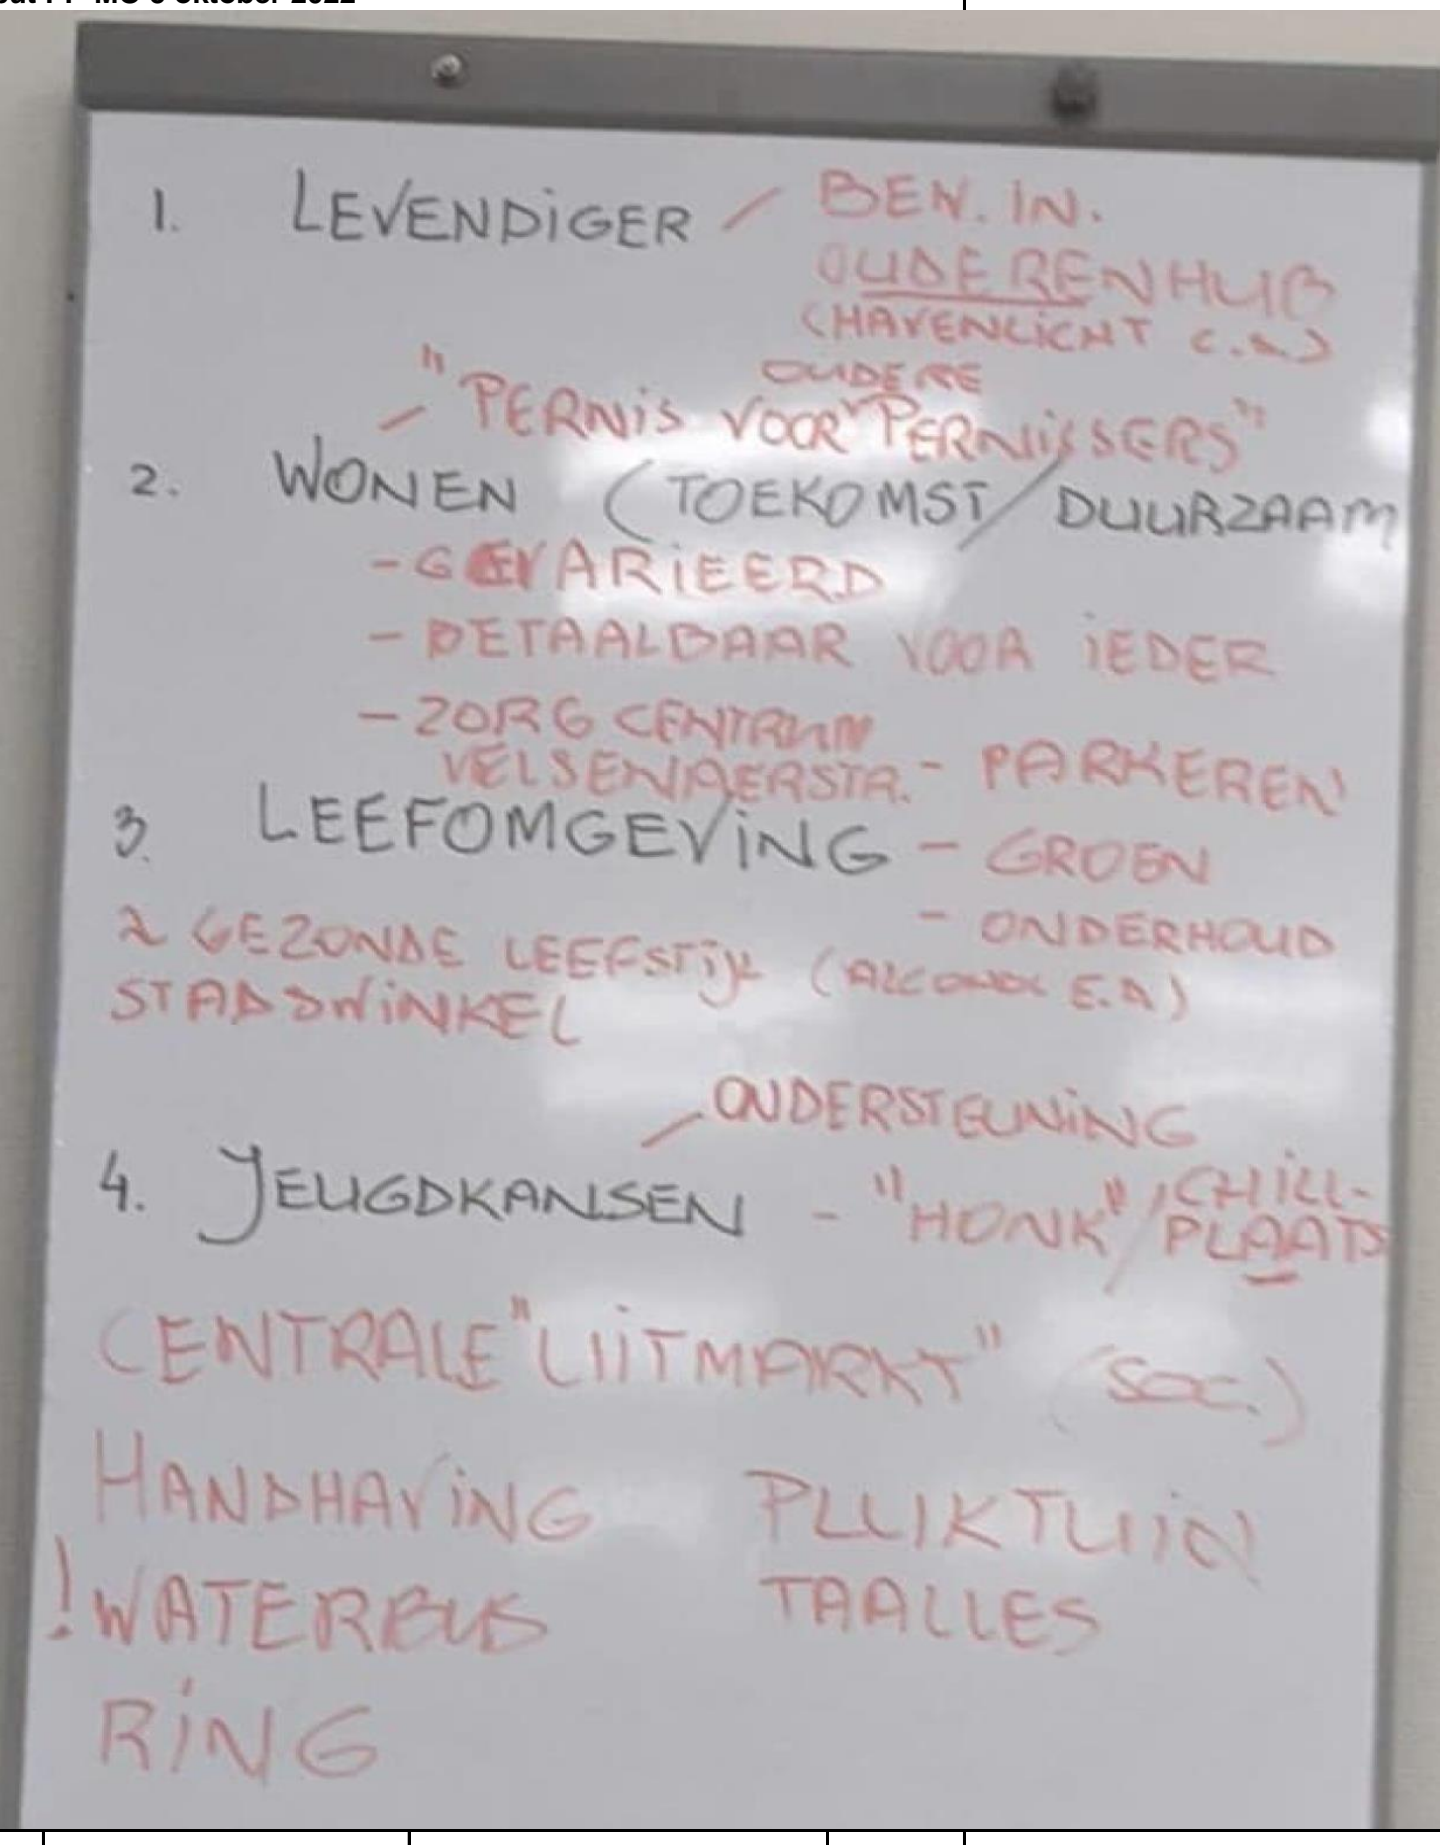 MO 6 oktober 2022
1. LEVENDIGER / BEN. IN.
OUDERENHUB
(HAVENLICHT E.A)
OUDERE
/ "PERNIS VOOR PERNISSERS"
2. WONEN (TOEKOMST/DUURZAAM
- GEVARIEERD
- BETAALBAAR VOOR iEDER
- ZORGCENTRUM
VELSENAERSTR. - PARKEREN
3. LEEFOMGEViNG - GROEN
- ONDERHOUD
& GEZONDE LEEFSTijL (ALCOHOL E.A)
STADSWiNKEL
/ ONDERSTEUNiNG
4. JEUGDKANSEN - "HONK" / CHiLL-
PLAATS
CENTRALE "UiTMARKT" (SOC.)
HANDHAViNG PLUKTUiN
! WATERBUS TAALLES
RiNG